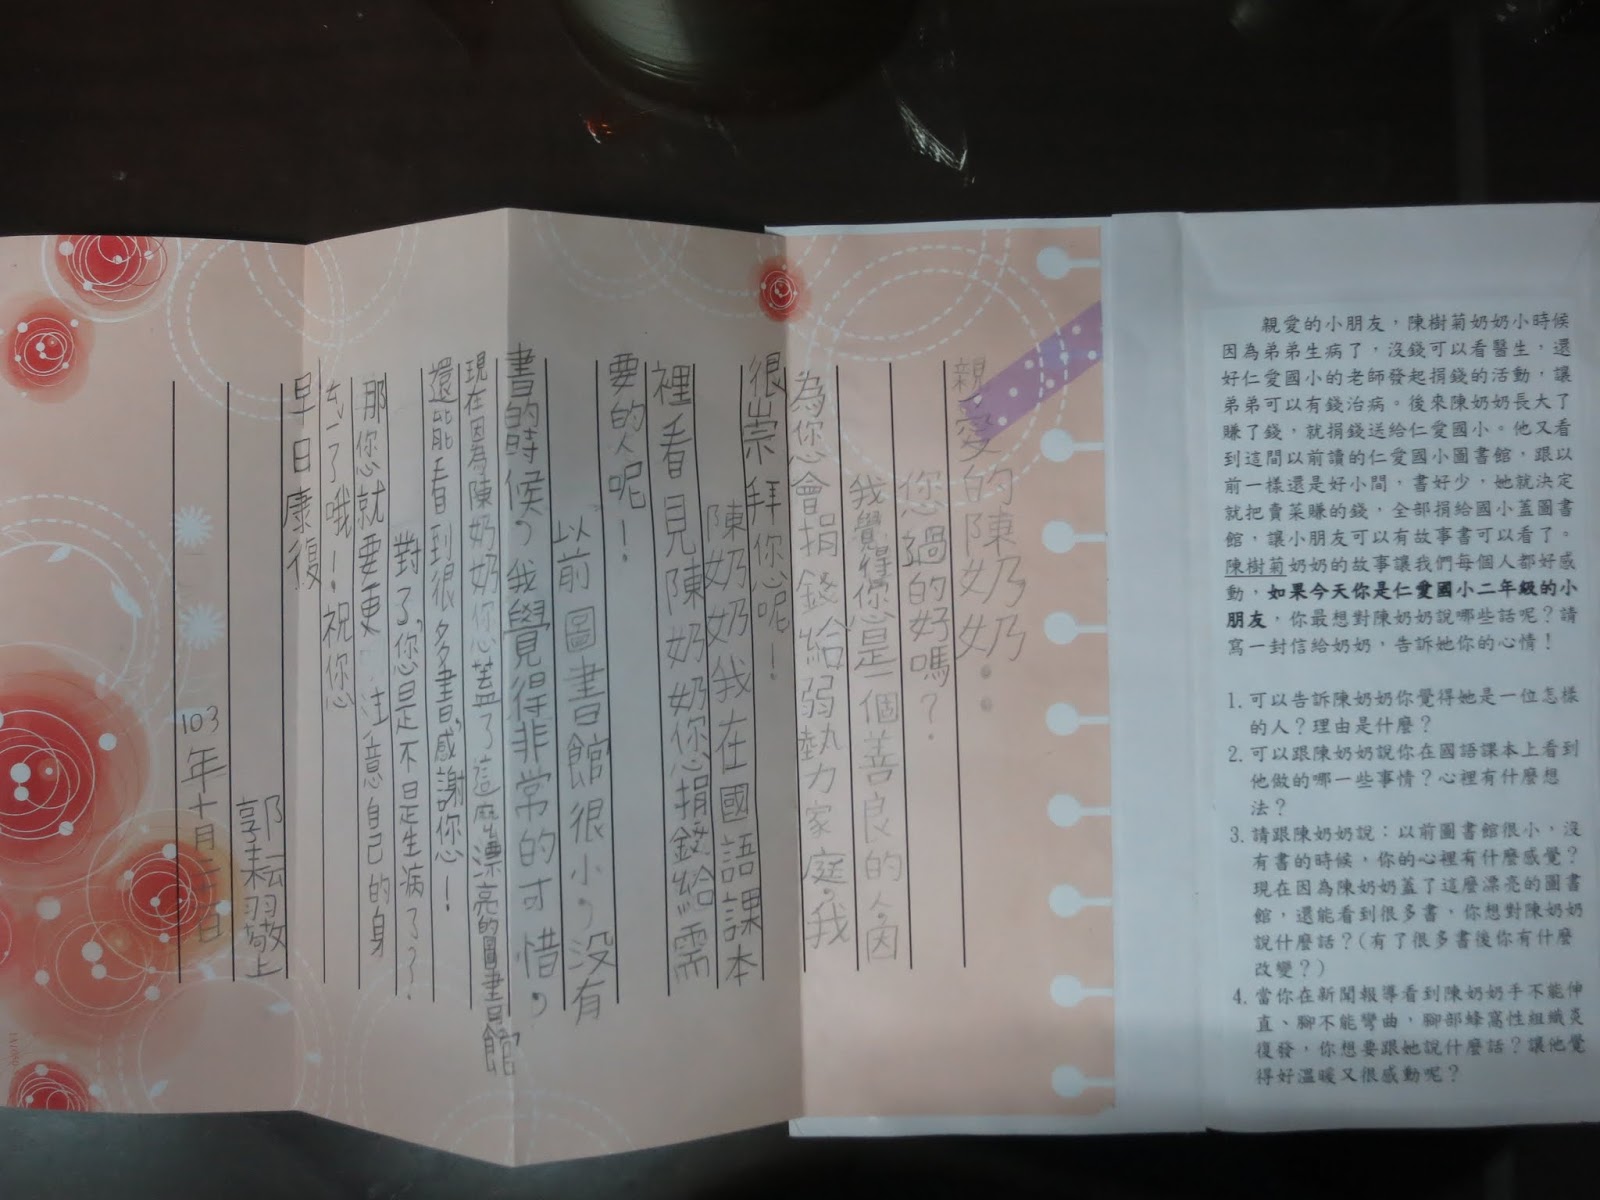 親愛的小朋友，陳樹菊奶奶小時候
因為弟弟生病了，沒錢可以看醫生，還
好仁愛國小的老師發起捐錢的活動，讓
弟弟可以有錢治病。後來陳奶奶長大了
賺了錢，就捐錢送給仁愛國小。他又看
到這間以前讀的仁愛國小圖書館，跟以
前一樣還是好小間，書好少，她就決定
就把賣菜賺的錢，全部捐給國小蓋圖書
館，讓小朋友可以有故事書可以看了。
陳樹菊奶奶的故事讓我們每個人都好感
動，如果今天你是仁愛國小二年級的小
朋友，你最想對陳奶奶說哪些話呢？請
寫一封信給奶奶，告訴她你的心情！
1. 可以告訴陳奶奶你覺得她是一位怎樣
的人？理由是什麼？
2. 可以跟陳奶奶說你在國語課本上看到
他做的哪一些事情？心裡有什麼想
法？
3. 請跟陳奶奶說：以前圖書館很小，沒
有書的時候，你的心裡有什麼感覺？
現在因為陳奶奶蓋了這麼漂亮的圖書
館，還能看到很多書，你想對陳奶奶
說什麼話？(有了很多書後你有什麼
改變？)
4. 當你在新聞報導看到陳奶奶手不能伸
直、腳不能彎曲，腳部蜂窩性組織炎
復發，你想要跟她說什麼話？讓他覺
得好溫暖又很感動呢？
親愛的陳奶奶：
您過的好嗎？
我覺得您是一個善良的人，因
為您會捐錢給弱勢力家庭，我
很崇拜您呢！
陳奶奶我在國語課本
裡看見陳奶奶您捐錢給需
要的人呢！
以前圖書館很小，沒有
書的時候，我覺得非常的可惜，
現在因為陳奶奶您蓋了這麼漂亮的圖書館
還能看到很多書，感謝您！
對了，您是不是生病了？
那您就要更注意自己的身
ㄊㄧˇ了哦！祝您
早日康復
郭耘翃敬上
103年十月二十日